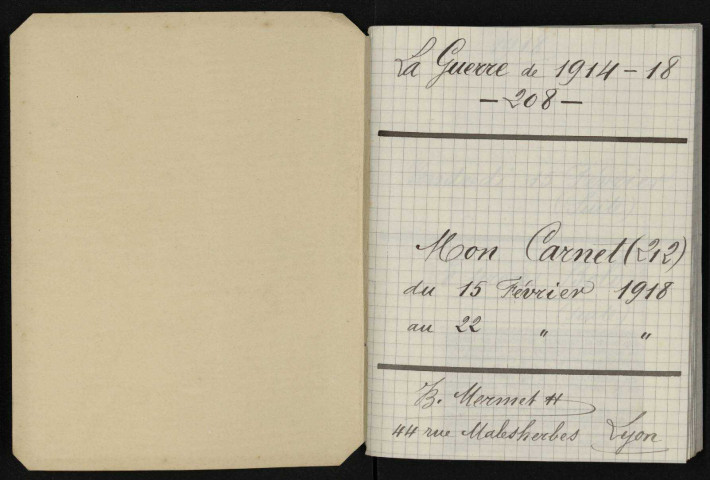 La Guerre de 1914-18
- 208 -
Mon Carnet (212)
du 15 Février 1918
au 22 " "
B. Mermet
44 rue Malesherbes Lyon